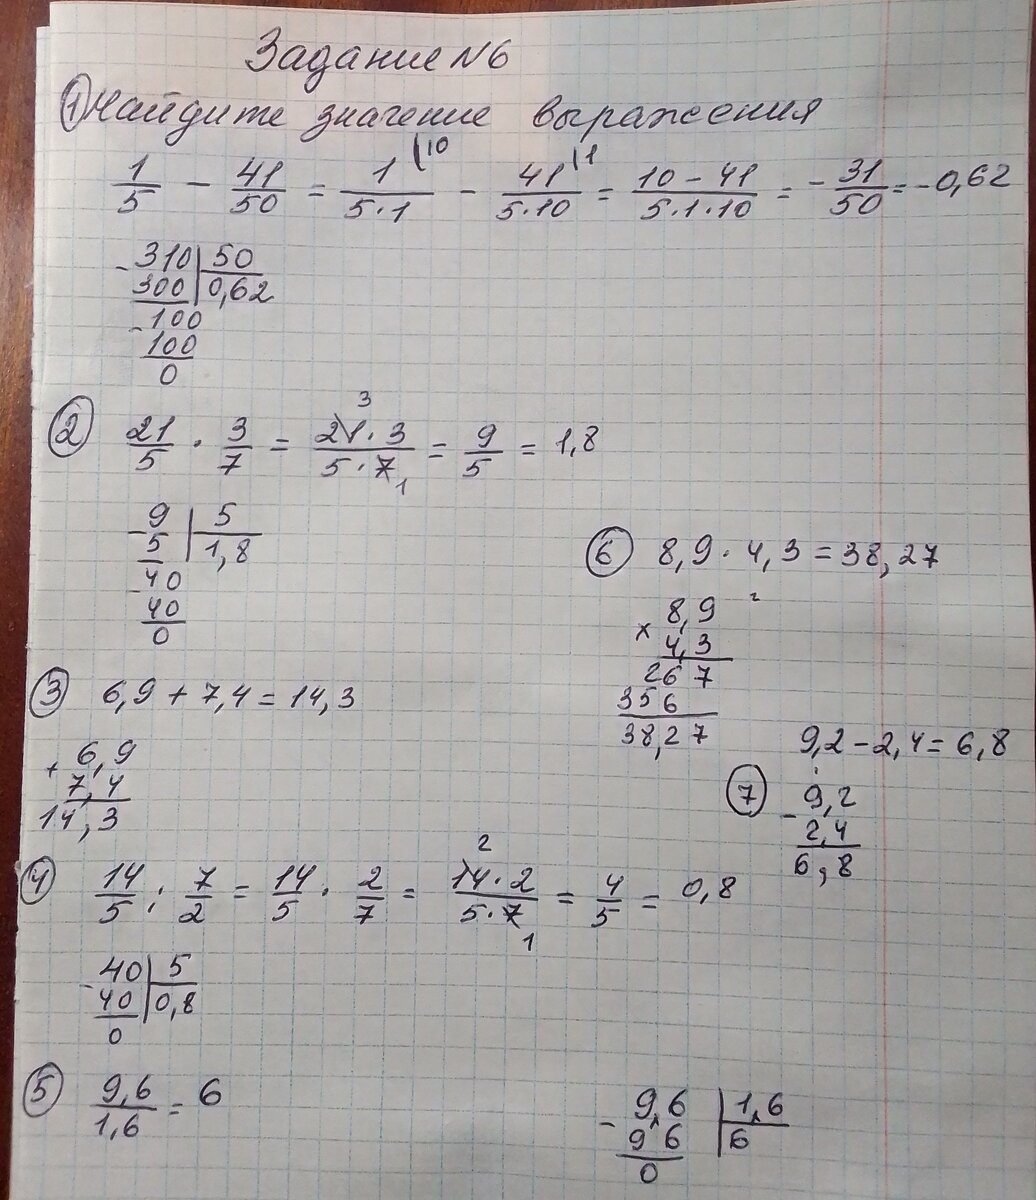 Задание №6
① Найдите значение выражения
1/5 - 41/50 = 1\10/5·1 - 41\1/5·10 = 10-41/5·1·10 = -31/50 = -0,62
-310|50
300|0,62
-100
100
0
② 21/5 · 3/7 = 21·3/5·7 = 9/5 = 1,8
3
1
-9|5
5|1,8
-40
40
0
③ 6,9 + 7,4 = 14,3
+6,9
7,4
14,3
④ 14/5 : 7/2 = 14/5 · 2/7 = 14·2/5·7 = 4/5 = 0,8
2
1
-40|5
40|0,8
0
⑤ 9,6/1,6 = 6
-9,6|1,6
96|6
0
⑥ 8,9 · 4,3 = 38,27
2
×8,9
4,3
267
356
38,27
⑦ 9,2 - 2,4 = 6,8
-9,2
2,4
6,8